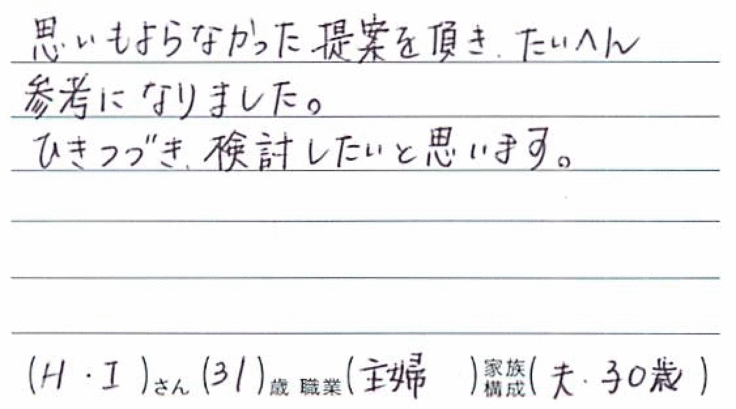 思いもよらなかった提案を頂き、たいへん
参考になりました。
ひきつづき、検討したいと思います。
(H・I)さん(31)歳 職業(主婦 )家族構成(夫・子0歳)